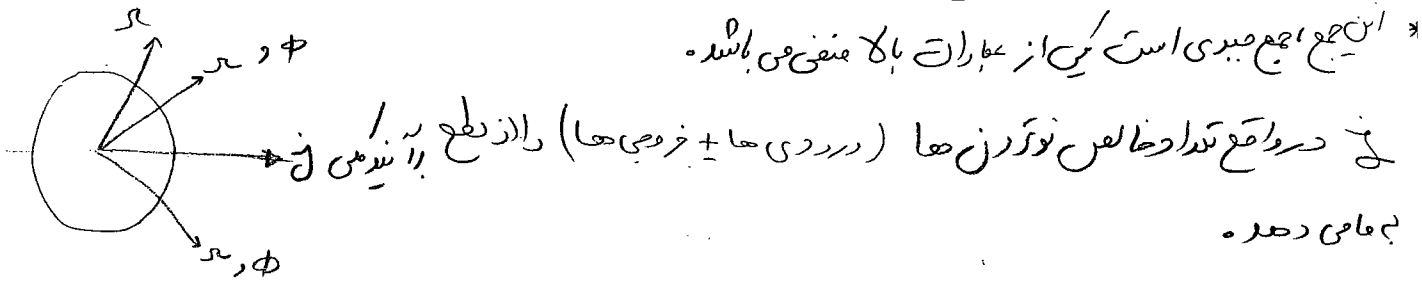 * این جمع، جمع جبری است یکی از عبارات بالا منفی می باشد.
j در واقع تعداد خالص نوترون ها (ورودی ها ± خروجی ها) را از سطح برآیند کلی j
به ما می دهد.
Ω
Ω , Φ
Ω , Φ